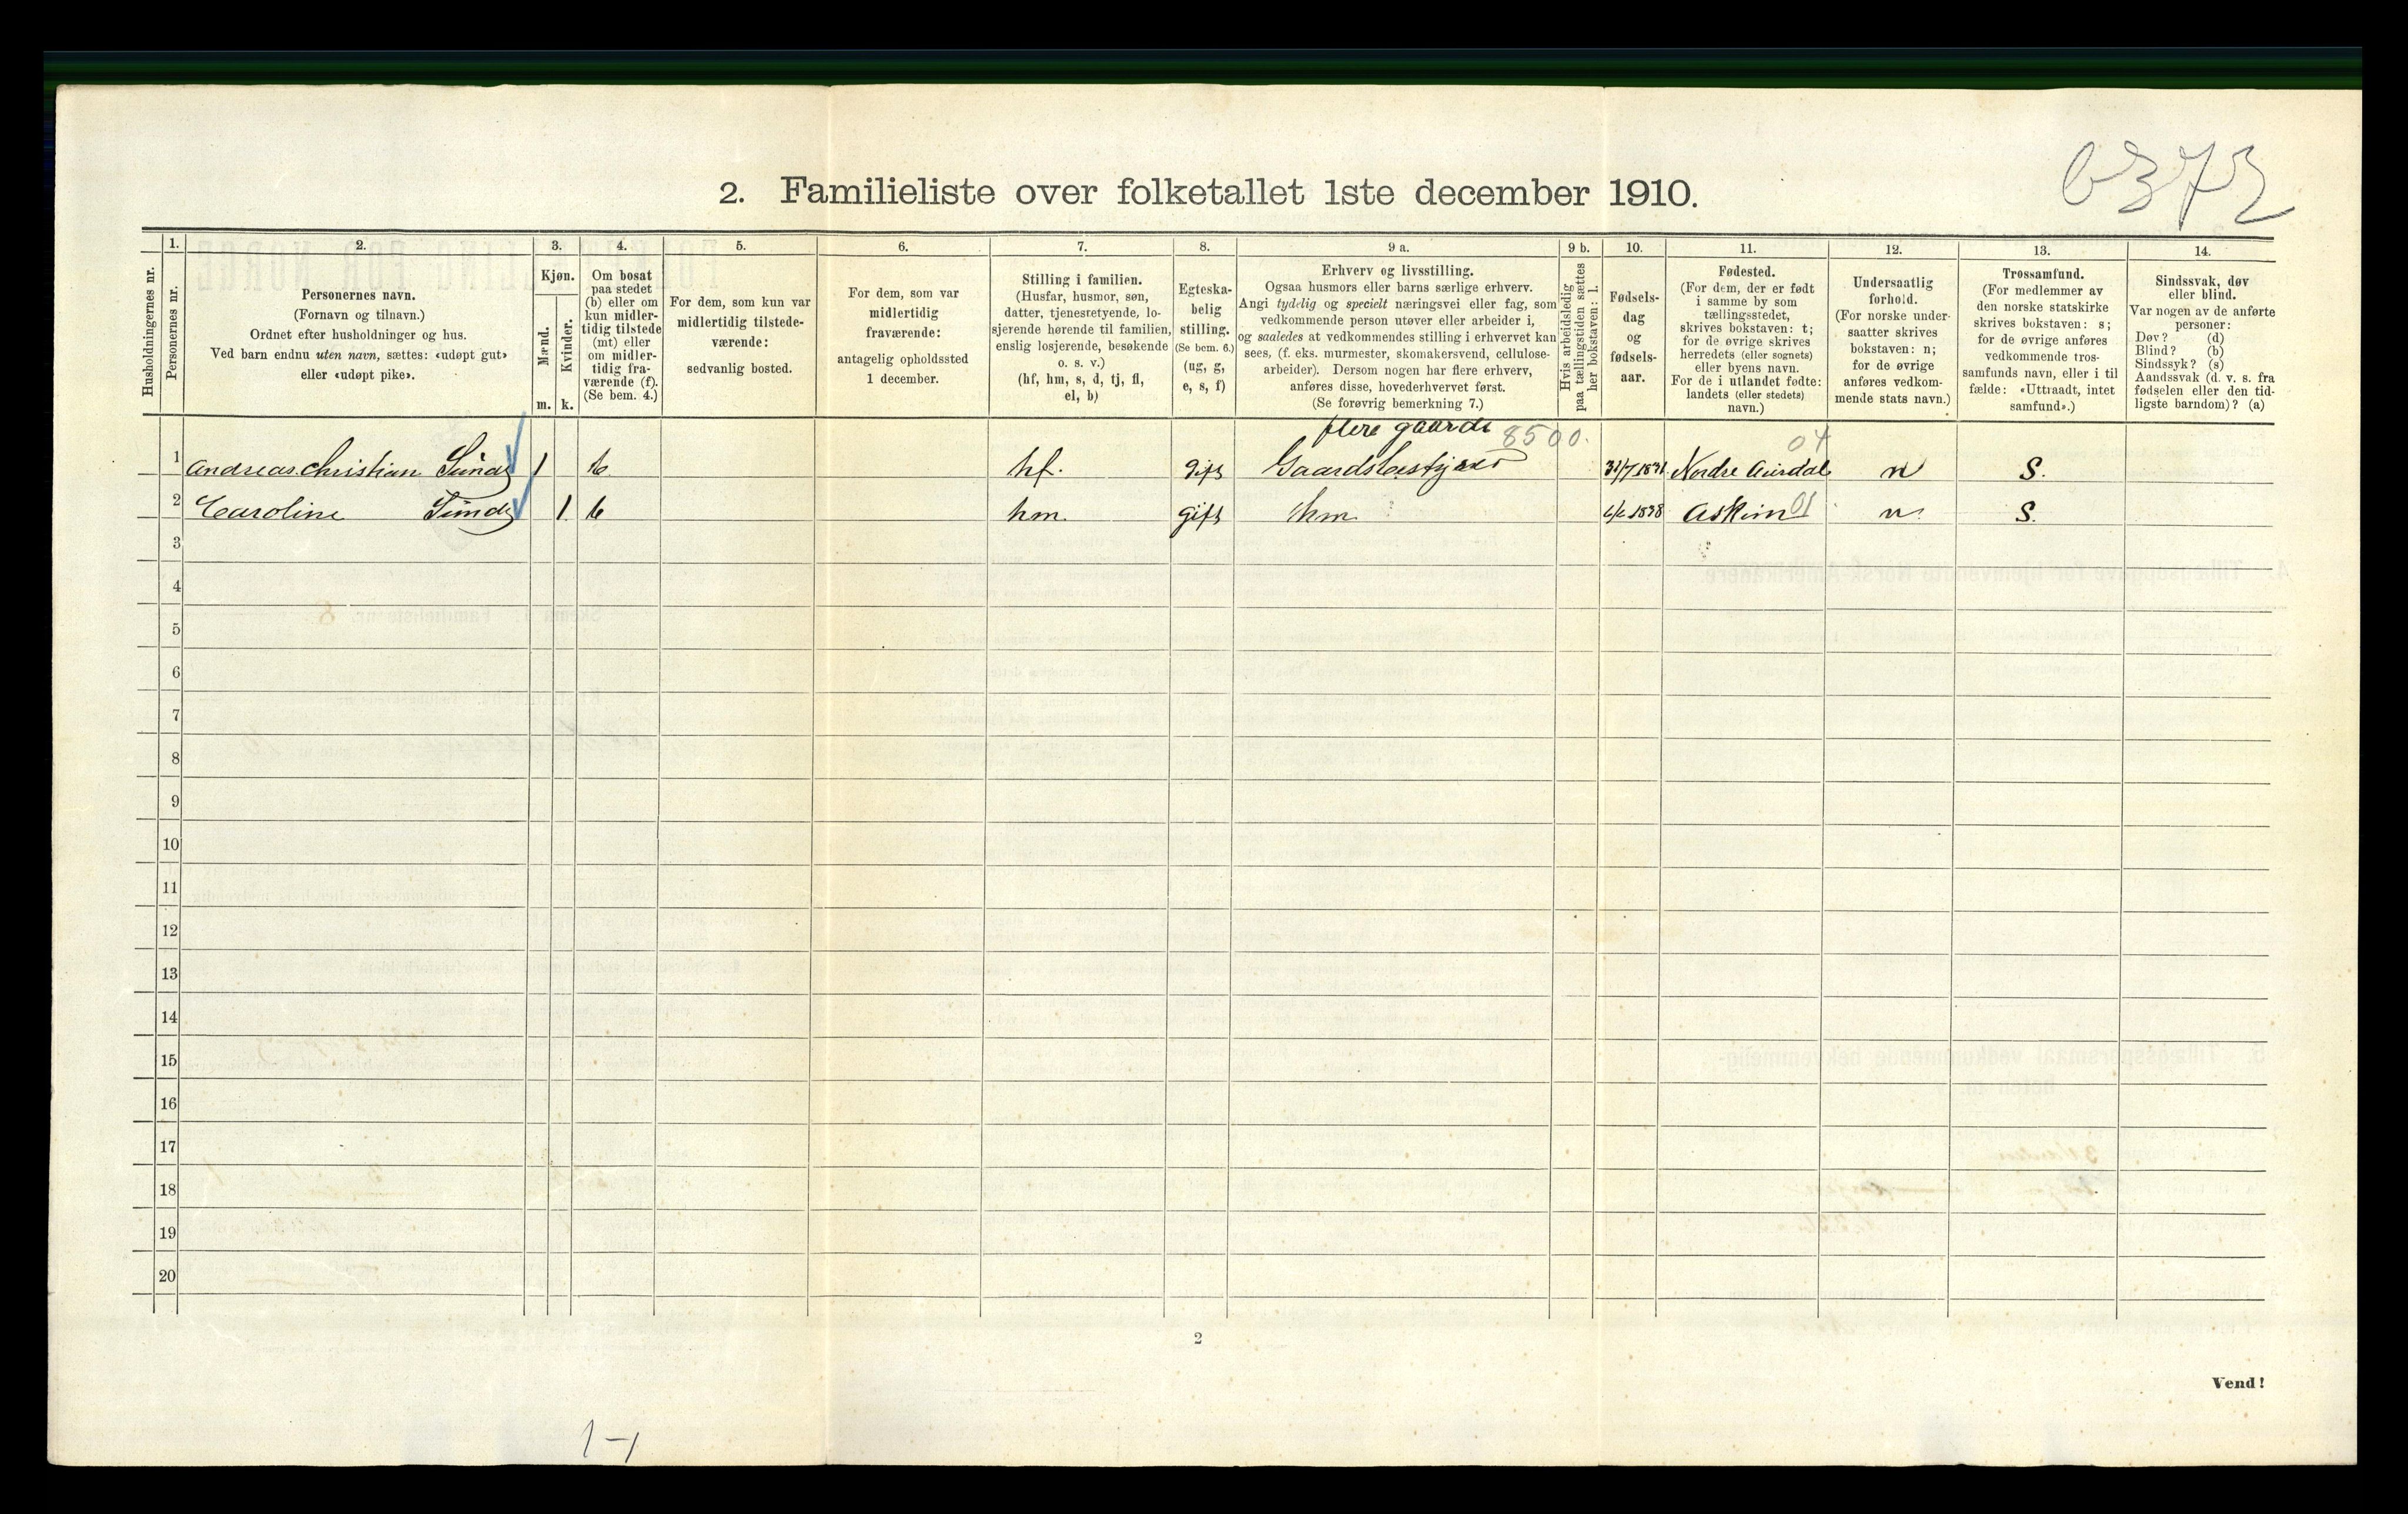 6373
2. Familieliste over folketallet 1ste december 1910.
Husholdningernes nr.
1.
Personernes nr.
2.
Personernes navn.
(Fornavn og tilnavn.)
Ordnet efter husholdninger og hus.
Ved barn endnu uten navn, sættes: «udøpt gut»
eller «udøpt pike».
3.
Kjøn.
Mænd.
Kvinder.
m. k.
4.
Om bosat
paa stedet
(b) eller om
kun midler-
tidig tilstede
(mt) eller
om midler-
tidig fra-
værende (f).
(Se bem. 4.)
5.
For dem, som kun var
midlertidig tilstede-
værende:
sedvanlig bosted.
6.
For dem, som var
midlertidig
fraværende:
antagelig opholdssted
1 december.
7.
Stilling i familien.
(Husfar, husmor, søn,
datter, tjenestetyende, lo-
sjerende hørende til familien,
enslig losjerende, besøkende
o. s. v.)
(hf, hm, s, d, tj, fl,
el, b)
8.
Egteska-
belig
stilling.
(Se bem. 6.)
(ug, g,
e, s, f)
9 a.
Erhverv og livsstilling.
Ogsaa husmors eller barns særlige erhverv.
Angi tydelig og specielt næringsvei eller fag, som
vedkommende person utøver eller arbeider i,
og saaledes at vedkommendes stilling i erhvervet kan
sees, (f. eks. murmester, skomakersvend, cellulose-
arbeider). Dersom nogen har flere erhverv,
anføres disse, hovederhvervet først.
(Se forøvrig bemerkning 7.)
9 b.
Hvis arbeidsledig
paa tællingstiden sættes
her bokstaven: l.
10.
Fødsels-
dag
og
fødsels-
aar.
11.
Fødested.
(For dem, der er født
i samme by som
tællingsstedet,
skrives bokstaven: t;
for de øvrige skrives
herredets (eller sognets)
eller byens navn.
For de i utlandet fødte:
landets (eller stedets)
navn.)
12.
Undersaatlig
forhold.
(For norske under-
saatter skrives
bokstaven: n;
for de øvrige
anføres vedkom-
mende stats navn.)
13.
Trossamfund.
(For medlemmer av
den norske statskirke
skrives bokstaven: s;
for de øvrige anføres
vedkommende tros-
samfunds navn, eller i til
fælde: «Uttraadt, intet
samfund».)
14.
Sindssvak, døv
eller blind.
Var nogen av de anførte
personer:
Døv? (d)
Blind? (b)
Sindssyk? (s)
Aandssvak (d. v. s. fra
fødselen eller den tid-
ligste barndom)? (a)
flere gaarde 8500. 04
1 Andreas. Christian Sunde 1 b hf. gift 31/7 1831 Nordre Aurdal n S.
2 Caroline Sunde 1 b hm. gift hm 1838 Askim 01 n. S.
3
4
5
6
7
8
9
10
11
12
13
14
15
16
17
18
19
20
2
Vend!
1-1